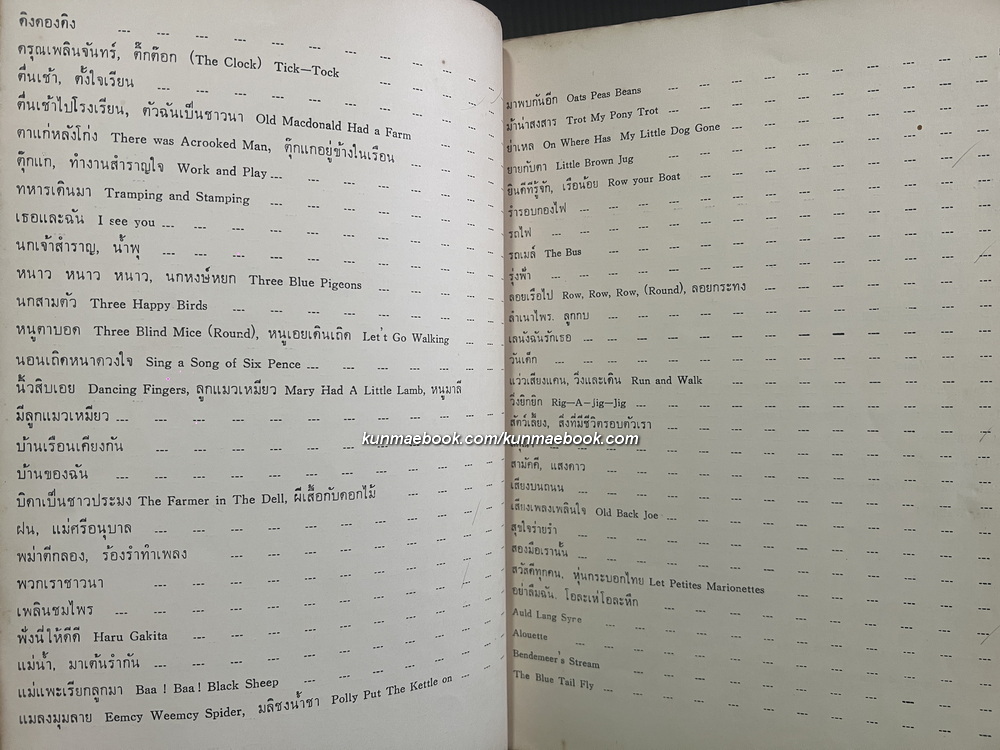 ดิงดองดิง
ดรุณเพลินจันทร์, ติ๊กต๊อก (The Clock) Tick—Tock
ตื่นเช้า, ตั้งใจเรียน
ตื่นเช้าไปโรงเรียน, ตัวฉันเป็นชาวนา Old Macdonald Had a Farm
ตาแก่หลังโก่ง There was Acrooked Man, ตุ๊กแกอยู่ข้างในเรือน
ตุ๊กแก, ทำงานสำราญใจ Work and Play
ทหารเดินมา Tramping and Stamping
เธอและฉัน I see you
นกเจ้าสำราญ, น้ำพุ
หนาว หนาว หนาว, นกหงษ์หยก Three Blue Pigeons
นกสามตัว Three Happy Birds
หนูตาบอด Three Blind Mice (Round), หนูเอยเดินเถิด Let't Go Walking
นอนเถิดหนาดวงใจ Sing a Song of Six Pence
นิ้วสิบเอย Dancing Fingers, ลูกแมวเหมียว Mary Had A Little Lamb, หนูมาลี
มีลูกแมวเหมียว
บ้านเรือนเคียงกัน
บ้านของฉัน
บิดาเป็นชาวประมง The Farmer in The Dell, ผีเสื้อกับดอกไม้
ฝน, แม่ศรีอนุบาล
พม่าตีกลอง, ร้องรำทำเพลง
พวกเราชาวนา
เพลินชมไพร
ฟังนี่ให้ดีดี Haru Gakita
แม่น้ำ, มาเต้นรำกัน
แม่แพะเรียกลูกมา Baa ! Baa! Black Sheep
แมลงมุมลาย Eemcy Weemcy Spider, มลิชงน้ำชา Polly Put The Kettle on
มาพบกันอีก Oats Peas Beans
ม้าน่าสงสาร Trot My Pony Trot
ย่าเหล On Where Has My Little Dog Gone
ยายกับตา Little Brown Jug
ยินดีที่รู้จัก, เรือน้อย Row your Boat
รำรอบกองไฟ
รถไฟ
รถเมล์ The Bus
รุ่งฟ้า
ลอยเรือไป Row, Row, Row, (Round), ลอยกระทง
ลำเนาไพร, ลูกกบ
เลนังฉันรักเธอ
วันเด็ก
แว่วเสียงแคน, วิ่งและเดิน Run and Walk
วิ่งยิกยิก Rig—A—Jig—Jig
สัตว์เลี้ยง, สิ่งที่มีชีวิตรอบตัวเรา
สามัคคี, แสงดาว
เสียงบนถนน
เสียงเพลงเพลินใจ Old Back Joe
สุขใจร่ายรำ
สองมือเรานั้น
สวัสดีทุกคน, หุ่นกระบอกไทย Let Petites Marionettes
อย่าลืมฉัน, โอละเห่โอละหึก
Auld Lang Syre
Alouette
Bendemeer's Stream
The Blue Tail Fly
kunmaebook.com/kunmaebook.com